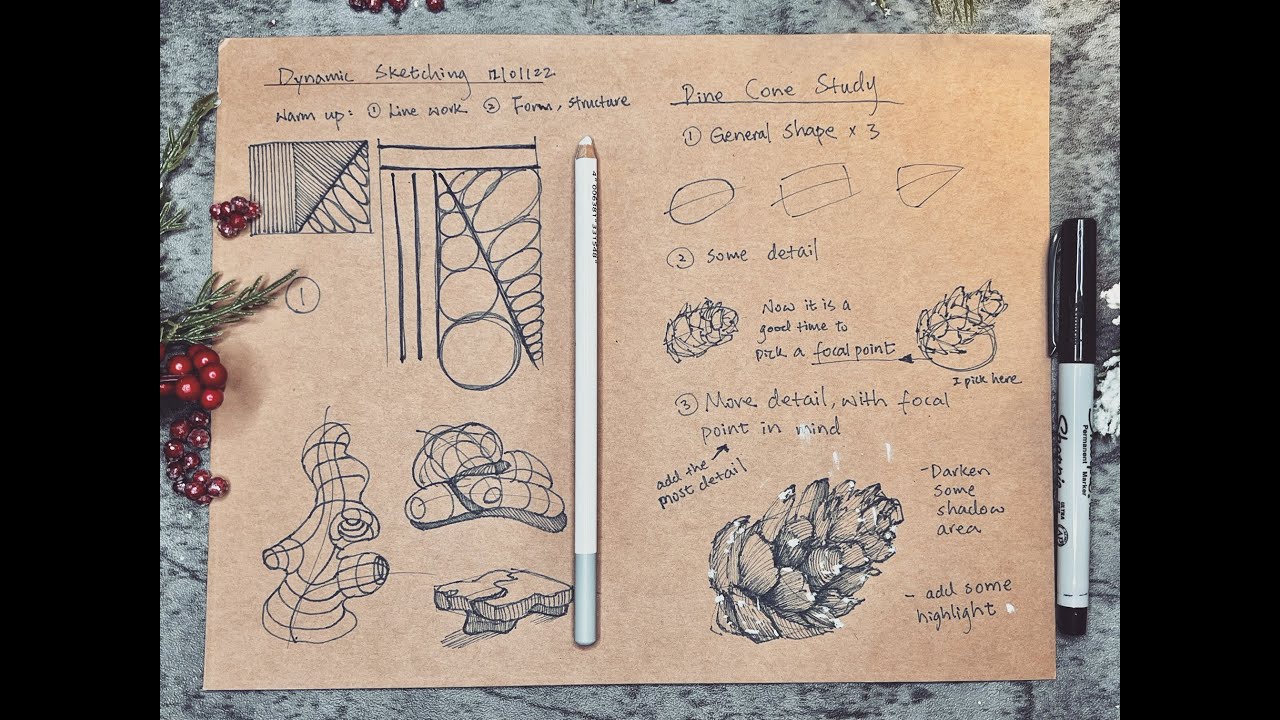 Dynamic Sketching 12/01/22
Warm up: ① Line work ② Form, structure
①
Pine Cone Study
① General shape × 3
② some detail
Now it is a
good time to
pick a focal point
I pick here
③ More detail, with focal
point in mind
add the
most detail
- Darken
some
shadow
area
- add some
highlight
4 "006381" 331548"
Sharpie
Permanent Marker